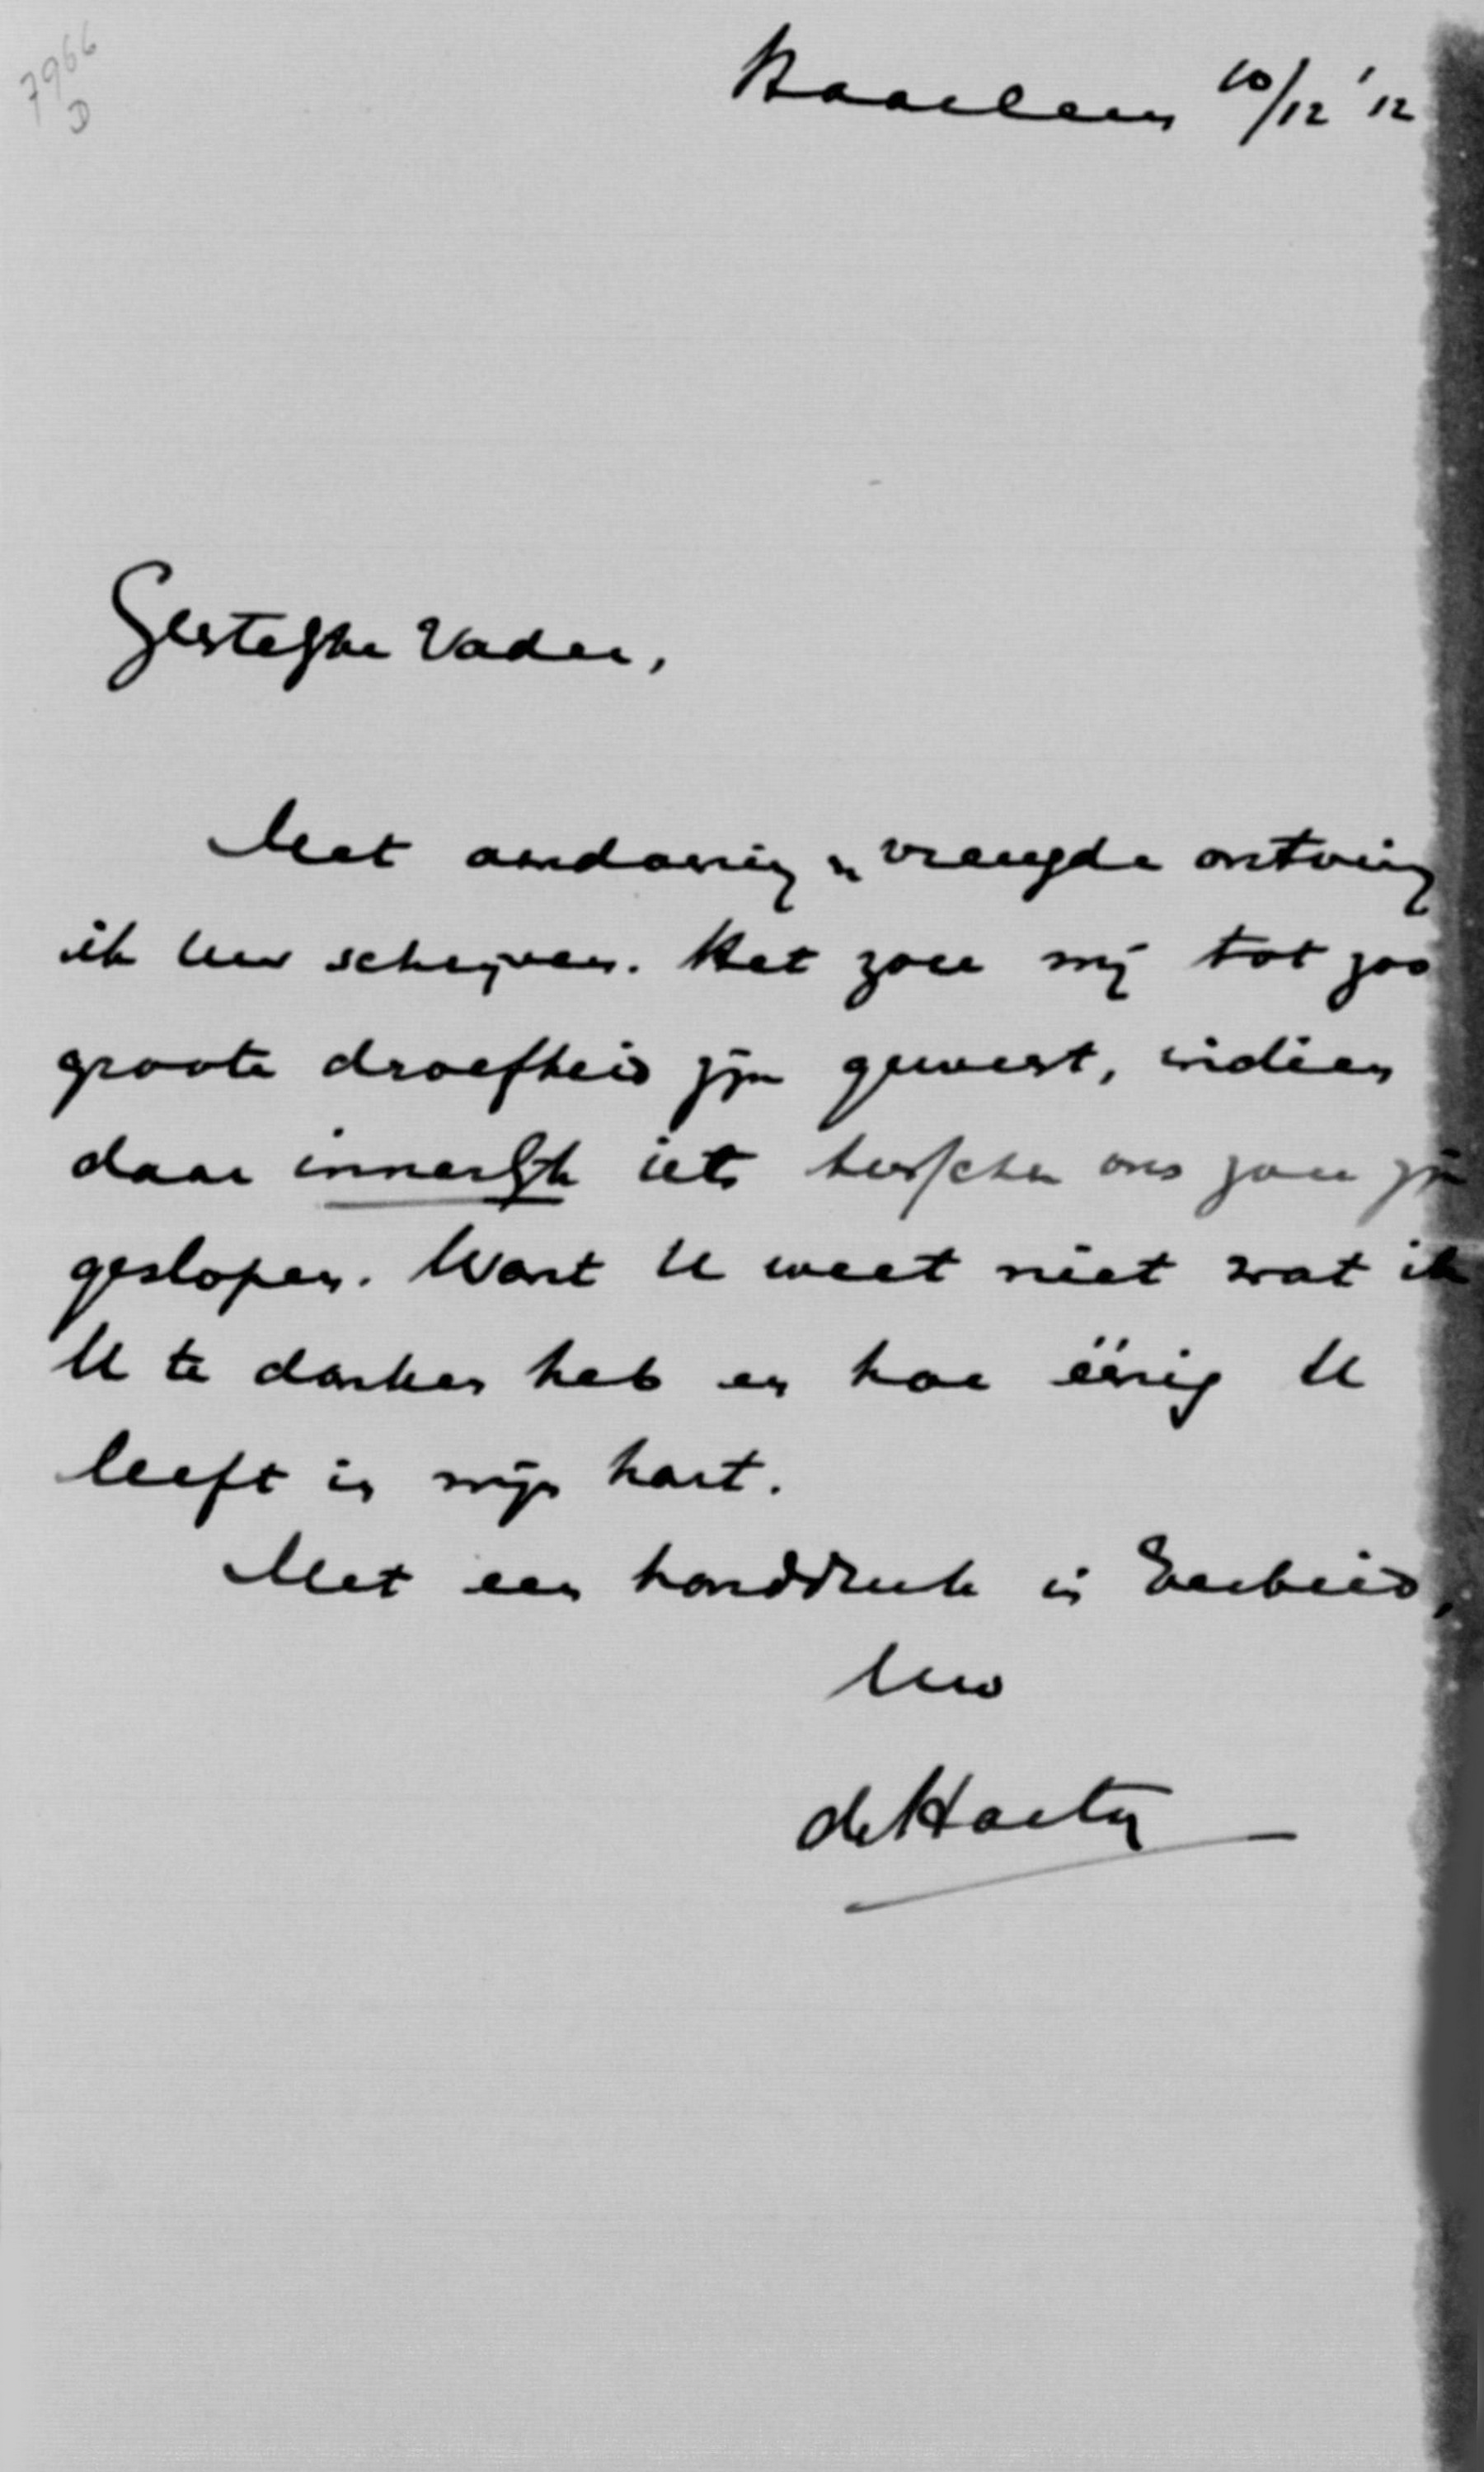 7966
D
Haarlem 10/12 '12
Geestelijke Vader,
Met aandoening en vreugde ontving
ik Uw schrijven. Het zou mij tot zoo
groote droefheid zijn geweest, indien
daar innerlijk iets tusschen ons zou zijn
geslopen. Want U weet niet wat ik
U te danken heb en hoe éénig U
leeft in mijn hart.
Met een handdruk in Eerbied,
Uw
de Hartog